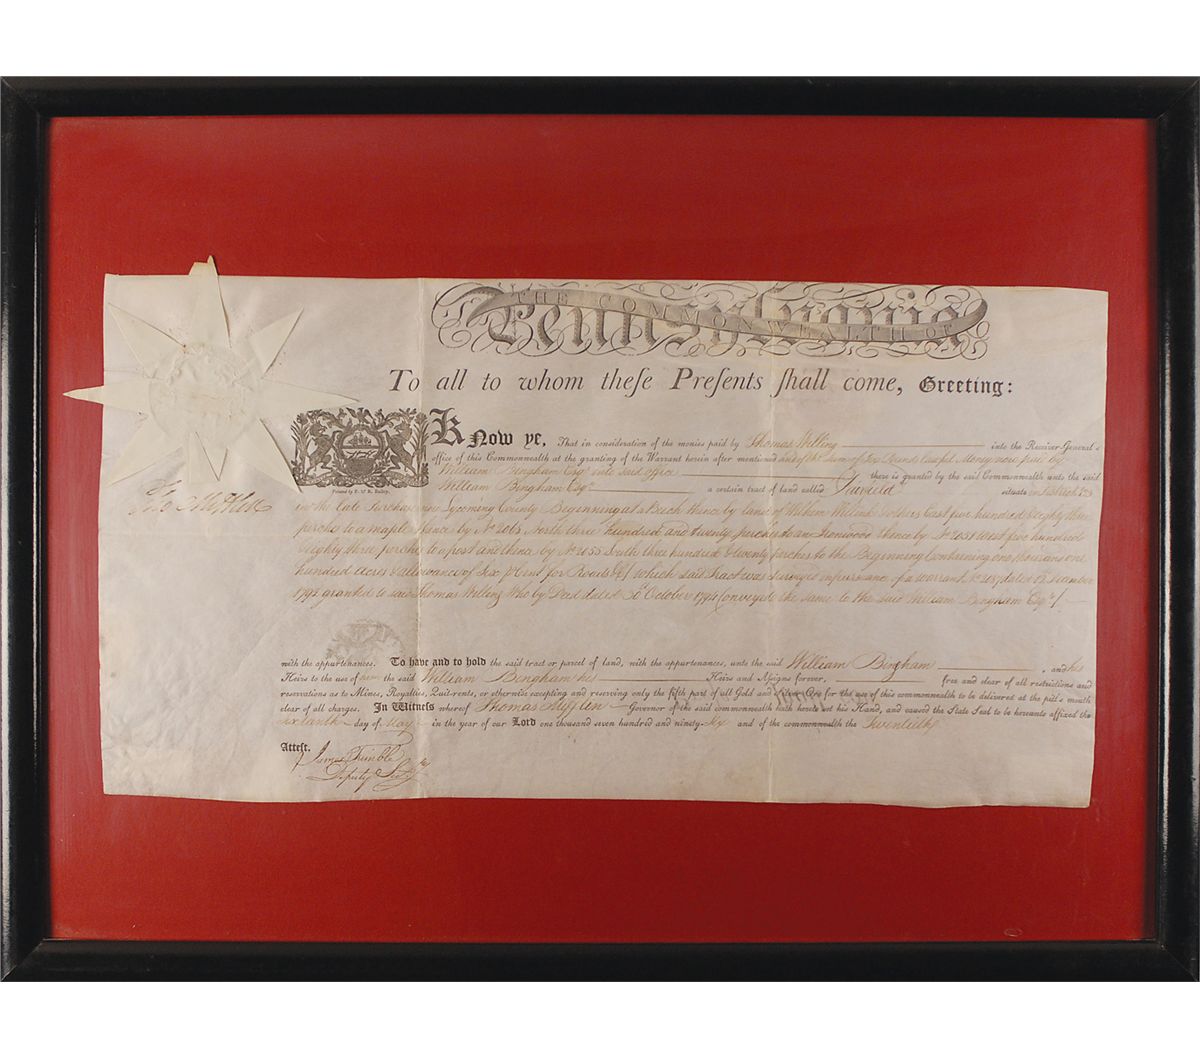 THE COMMONWEALTH OF
Pennsylvania
To all to whom theſe Preſents ſhall come, Greeting:
Know ye, That in conſideration of the monies paid by Thomas Willing into the Receiver-General's
office of this Commonwealth at the granting of the Warrant herein after mentioned and of the Sum of Six Pounds lawful Money now paid by
William Bingham Esqr into said office there is granted by the ſaid Commonwealth unto the ſaid
William Bingham Esqr a certain tract of land called situate
Printed by F. & R. Bailey.
Tho Mifflin
in the late Purchase now Lycoming County Beginning at a Beech thence by land of William Willink & others East five hundred & eighty three
perches to a maple thence by No 2063 North three hundred and twenty perches to an Ironwood thence by No 2051 West five hundred
& eighty three perches to a post and thence by No 2055 South three hundred & twenty perches to the Beginning Containing one thousand one
hundred Acres & allowance of Six p Cent for Roads &c which said Tract was surveyed in pursuance of a warrant No dated 12 December
1792 granted to said Thomas Willing Who by Deed dated 30th October 1794 Conveyed the same to the said William Bingham Esqr
with the appurtenances. To have and to hold the ſaid tract or parcel of land, with the appurtenances, unto the ſaid William Bingham and his
Heirs to the uſe of him the ſaid William Bingham his Heirs and Aſſigns forever, free and clear of all reſtrictions and
reſervations as to Mines, Royalties, Quit-rents, or otherwiſe excepting and reſerving only the fifth part of all Gold and Silver Ore for the uſe of this commonwealth to be delivered at the pit's mouth
clear of all charges. In Witneſs whereof Thomas Mifflin Governor of the ſaid commonwealth hath hereto ſet his Hand, and cauſed the State Seal to be hereunto affixed the
Sixteenth day of May in the year of our Lord one thouſand ſeven hundred and ninety-six and of the commonwealth the Twentieth
Atteſt.
James Trimble
Deputy Secy